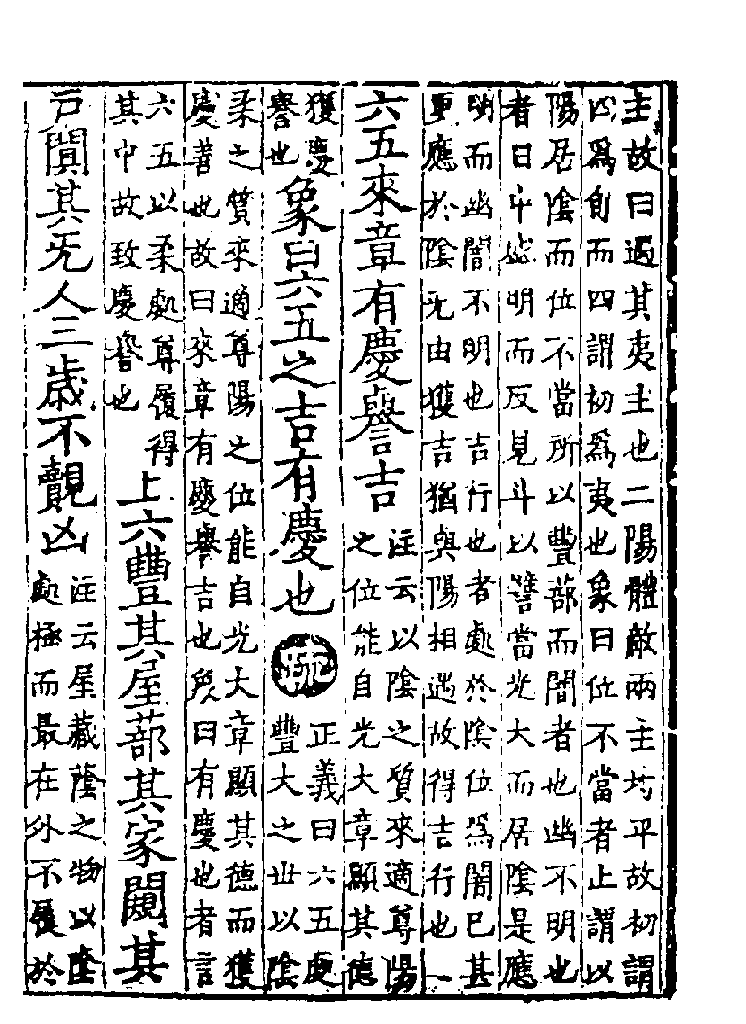 主故曰遇其夷主也二陽體敵兩主均平故初謂
四爲旬而四謂初爲夷也象曰位不當者止謂以
陽居陰而位不當所以豐蔀而闇者也幽不明也
者日中盛明而反見斗以譬當光大而居陰是應
明而幽闇不明也吉行也者處於陰位爲闇已甚
更應於陰无由獲吉猶與陽相遇故得吉行也
六五來章有慶譽吉
注云以陰之質來適尊陽
之位能自光大章顯其德
獲慶
譽也
象曰六五之吉有慶也
疏
正義曰六五處
豐大之世以陰
柔之質來適尊陽之位能自光大章顯其德而獲
慶善也故曰來章有慶譽吉也象曰有慶也者言
六五以柔處尊履得
其中故致慶譽也
上六豐其屋蔀其家闚其
戶闃其无人三歲不覿凶
注云屋藏蔭之物以陰
處極而最在外不履於